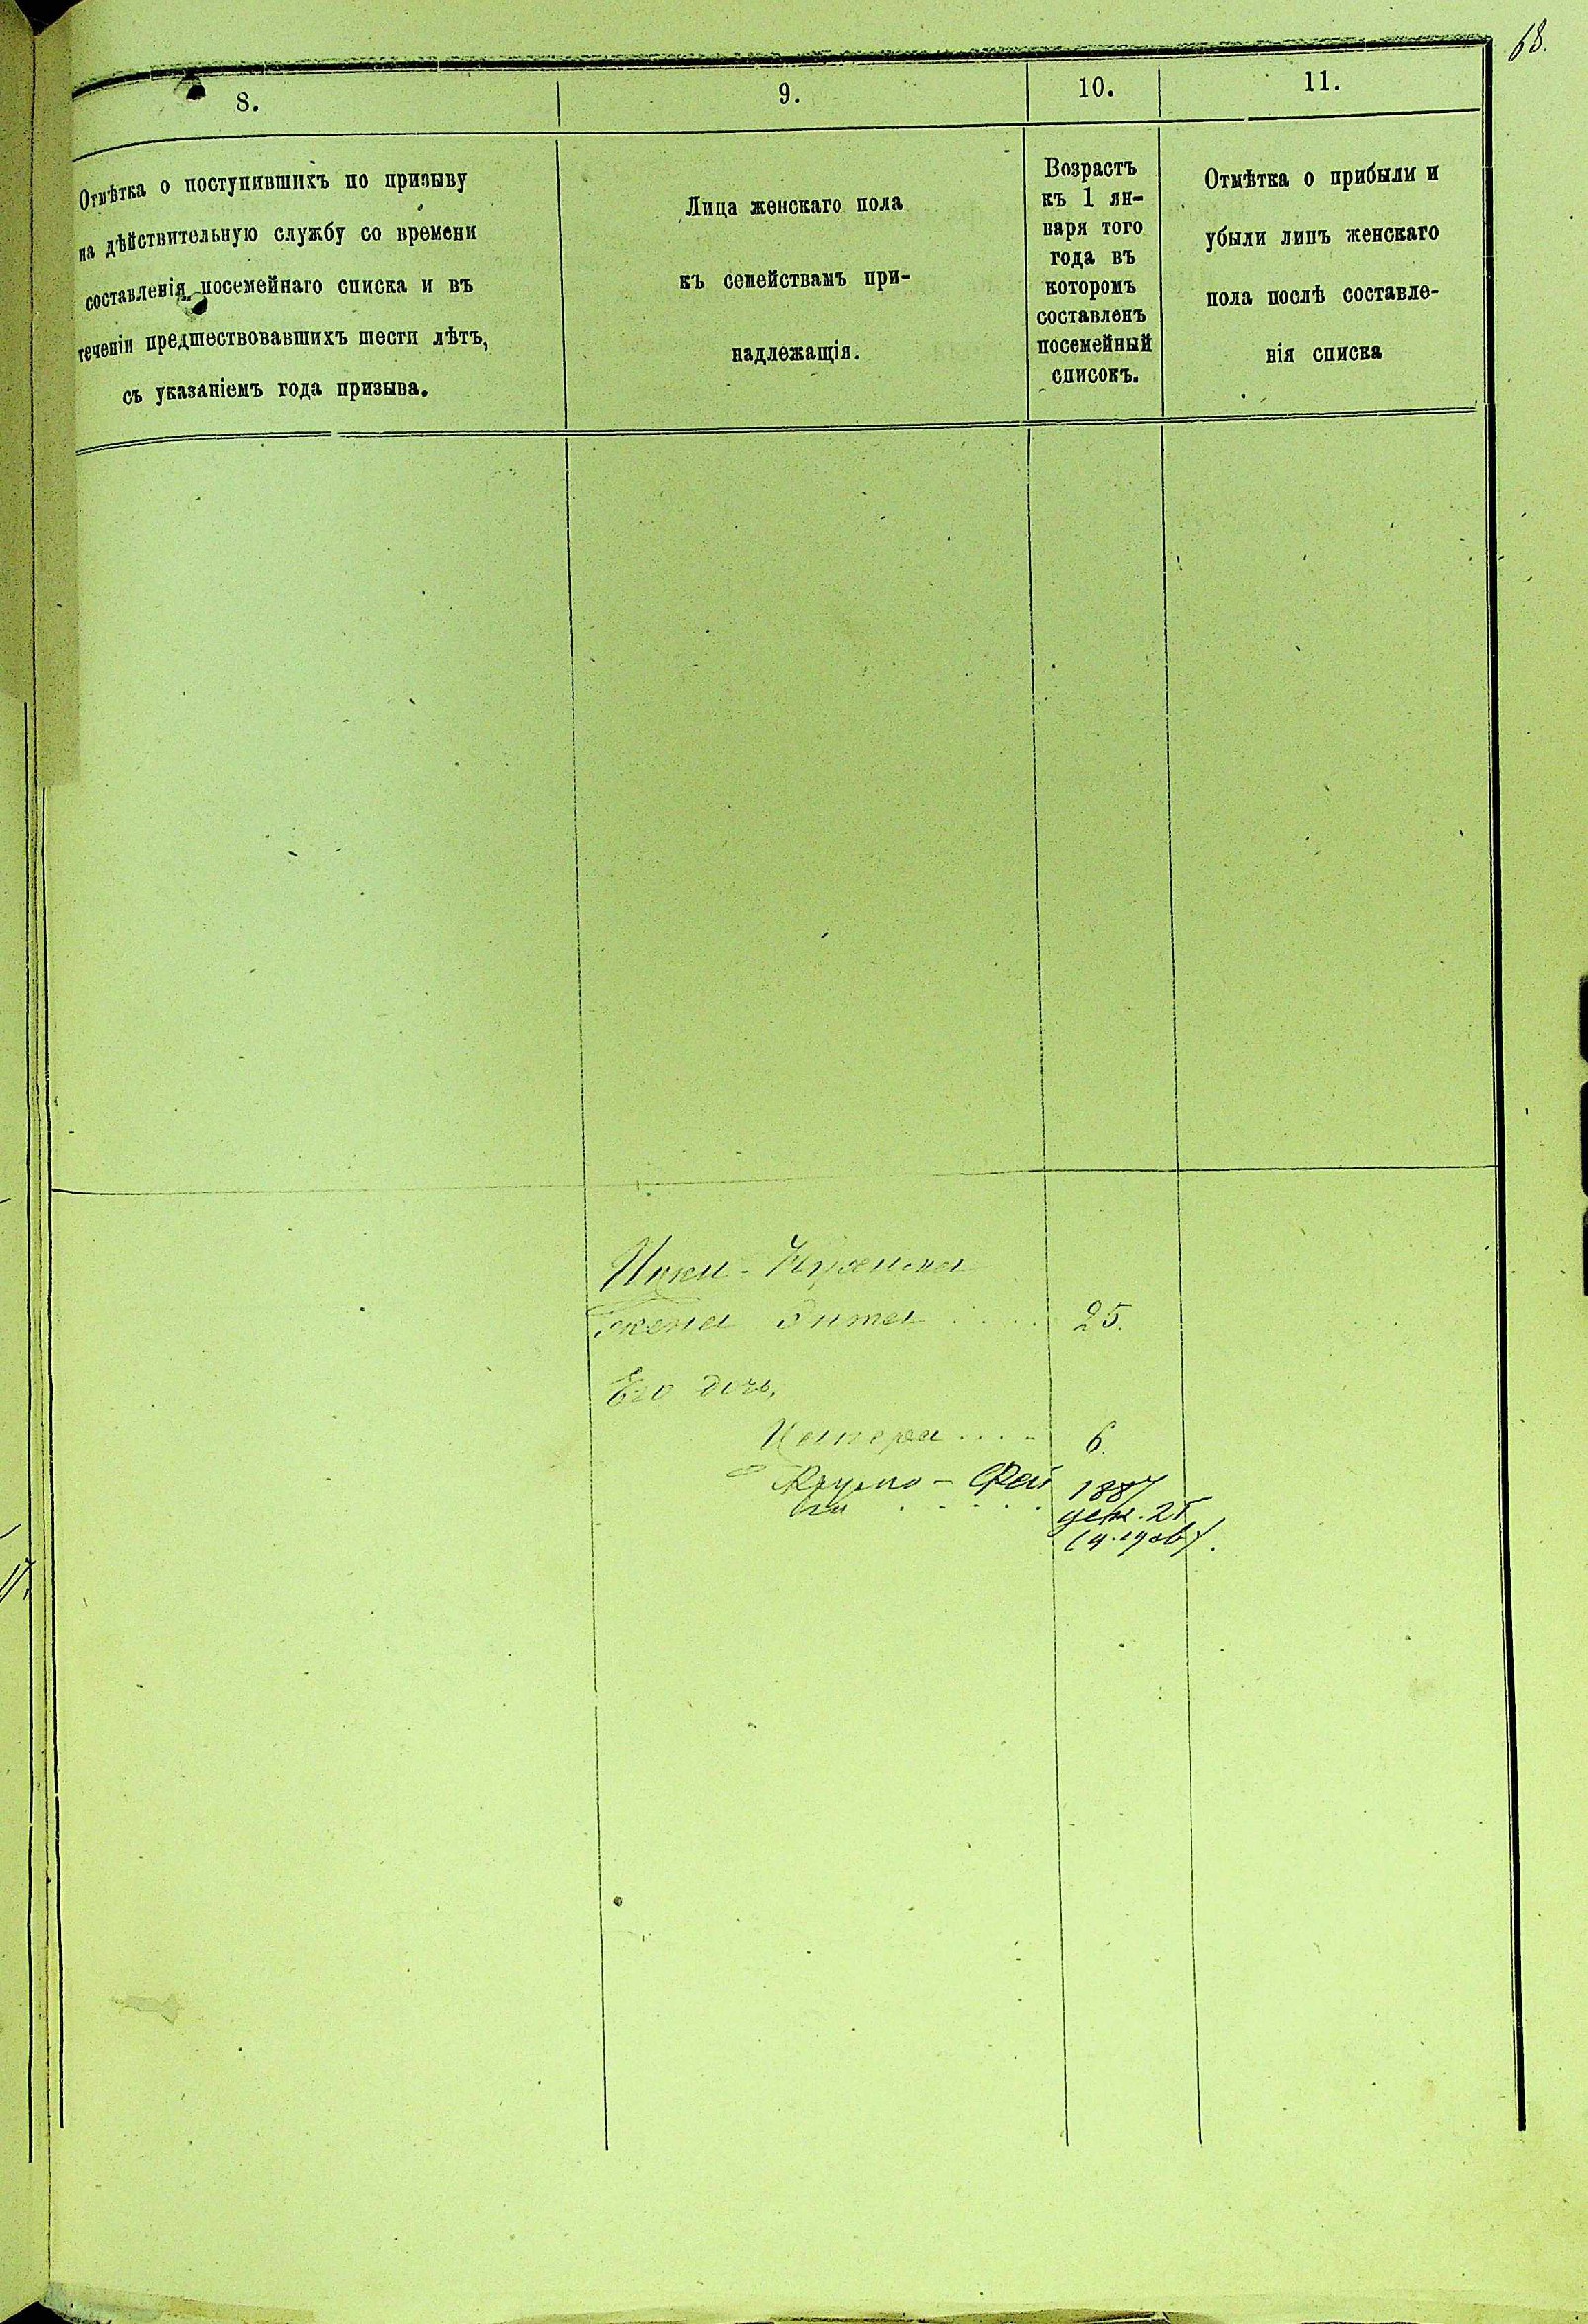 68.
8.
9.
10.
11.
Отмѣтка о поступившихъ по призыву
на дѣйствительную службу со времени
составленія посемейнаго списка и въ
теченіи предшествовавшихъ шести лѣтъ,
съ указаніемъ года призыва.
Лица женскаго пола
къ семействамъ при-
надлежащія.
Возрастъ
къ 1 ян-
варя того
года въ
которомъ
составленъ
посемейный
списокъ.
Отмѣтка о прибыли и
убыли лицъ женскаго
пола послѣ составле-
нія списка
жена 25.
Его дочь,
6.
1887